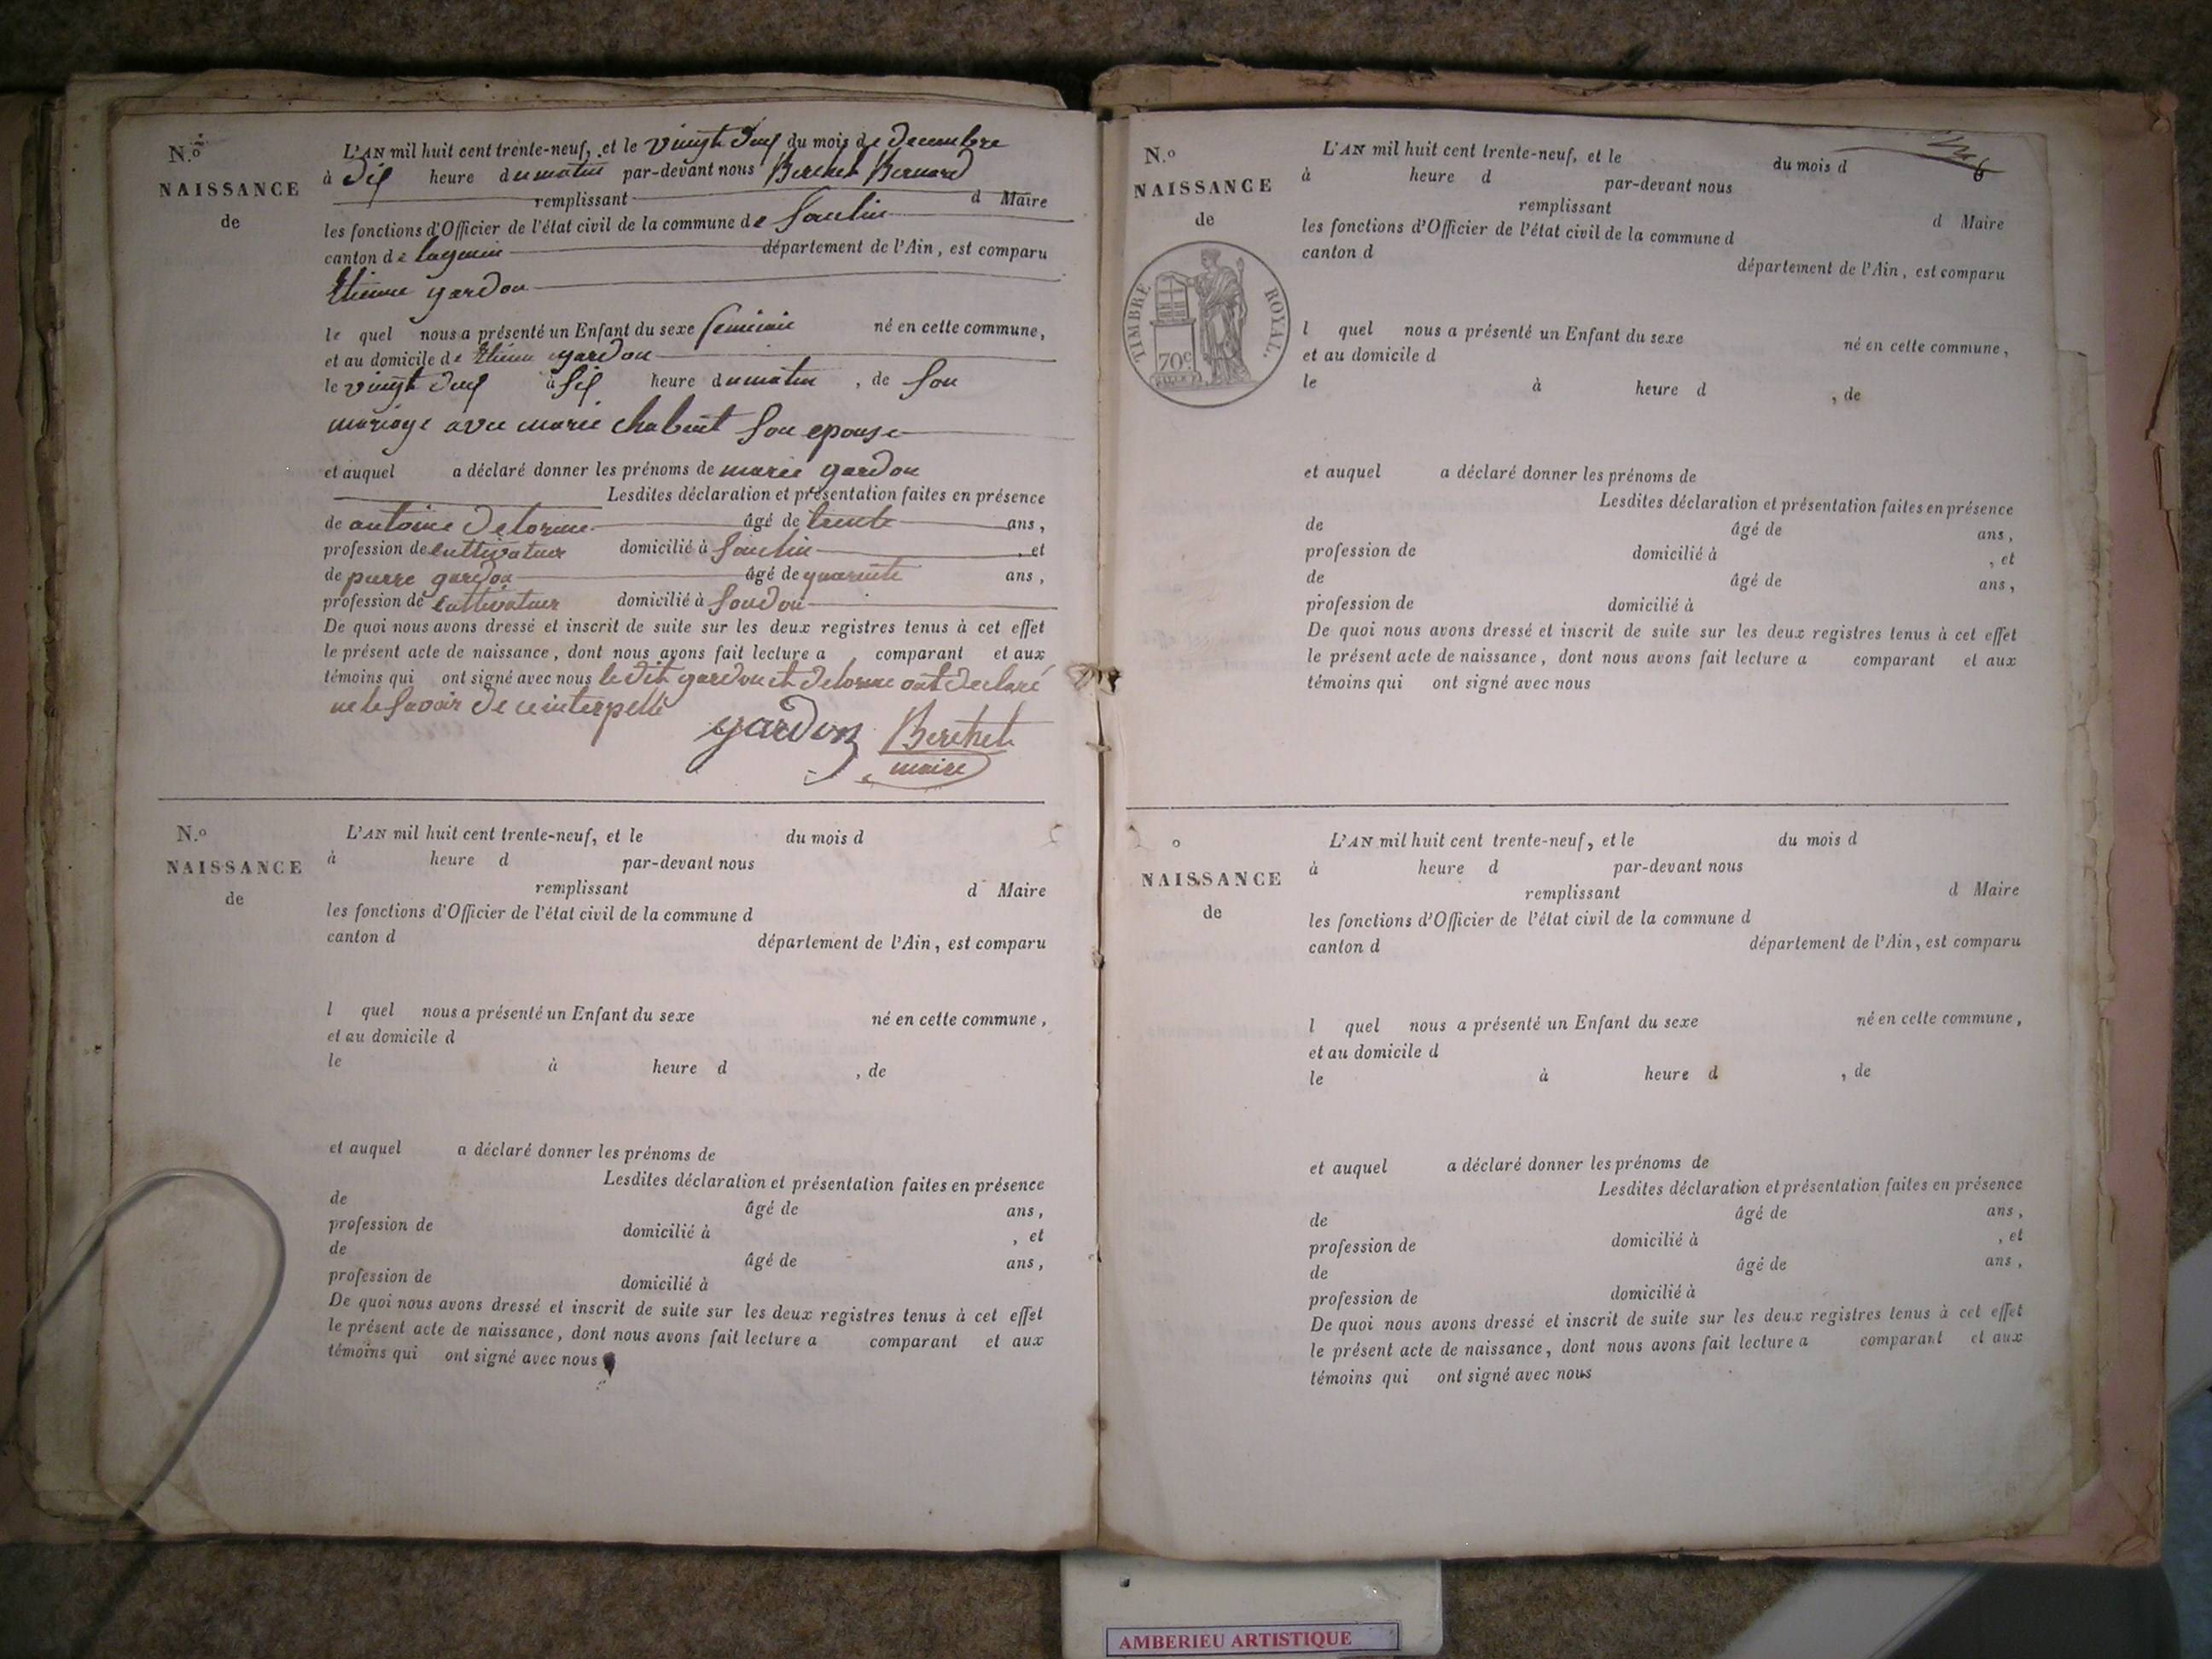 N.o
NAISSANCE
de
L'AN mil huit cent trente-neuf, et le vingt deux du mois de decembre
à dix heure du matin par-devant nous Berthet Bernard
remplissant d Maire
les fonctions d'Officier de l'état civil de la commune de Soudon
canton de lagnieu département de l'Ain, est comparu
Etienne gardon
le quel nous a présenté un Enfant du sexe feminin né en cette commune,
et au domicile de Etienne gardon
le vingt deux à six heure du matin , de son
mariage avec marie son epouse
et auquel a déclaré donner les prénoms de marie gardon
Lesdites déclaration et présentation faites en présence
de antoine delorme âgé de trente ans,
profession de cultivateur domicilié à , et
de pierre gardon âgé de quarente ans,
profession de cultivateur domicilié à Soudon
De quoi nous avons dressé et inscrit de suite sur les deux registres tenus à cet effet
le présent acte de naissance, dont nous avons fait lecture a comparant et aux
témoins qui ont signé avec nous le dit gardon et delorme ont declaré
ne le savoir de ce interpellé
gardon Berthet
maire
N.o
NAISSANCE
de
L'AN mil huit cent trente-neuf, et le du mois d
à heure d par-devant nous
remplissant d Maire
les fonctions d'Officier de l'état civil de la commune d
canton d département de l'Ain, est comparu
l quel nous a présenté un Enfant du sexe né en cette commune,
et au domicile d
le à heure d , de
et auquel a déclaré donner les prénoms de
Lesdites déclaration et présentation faites en présence
de âgé de ans,
profession de domicilié à , et
de âgé de ans,
profession de domicilié à
De quoi nous avons dressé et inscrit de suite sur les deux registres tenus à cet effet
le présent acte de naissance, dont nous avons fait lecture a comparant et aux
témoins qui ont signé avec nous
N.o
NAISSANCE
de
TIMBRE ROYAL.
70c
L'AN mil huit cent trente-neuf, et le du mois d
à heure d par-devant nous
remplissant d Maire
les fonctions d'Officier de l'état civil de la commune d
canton d département de l'Ain, est comparu
l quel nous a présenté un Enfant du sexe né en cette commune,
et au domicile d
le à heure d , de
et auquel a déclaré donner les prénoms de
Lesdites déclaration et présentation faites en présence
de âgé de ans,
profession de domicilié à , et
de âgé de ans,
profession de domicilié à
De quoi nous avons dressé et inscrit de suite sur les deux registres tenus à cet effet
le présent acte de naissance, dont nous avons fait lecture a comparant et aux
témoins qui ont signé avec nous
o
NAISSANCE
de
L'AN mil huit cent trente-neuf, et le du mois d
à heure d par-devant nous
remplissant d Maire
les fonctions d'Officier de l'état civil de la commune d
canton d département de l'Ain, est comparu
l quel nous a présenté un Enfant du sexe né en cette commune,
et au domicile d
le à heure d , de
et auquel a déclaré donner les prénoms de
Lesdites déclaration et présentation faites en présence
de âgé de ans,
profession de domicilié à , et
de âgé de ans,
profession de domicilié à
De quoi nous avons dressé et inscrit de suite sur les deux registres tenus à cet effet
le présent acte de naissance, dont nous avons fait lecture a comparant et aux
témoins qui ont signé avec nous
AMBERIEU ARTISTIQUE